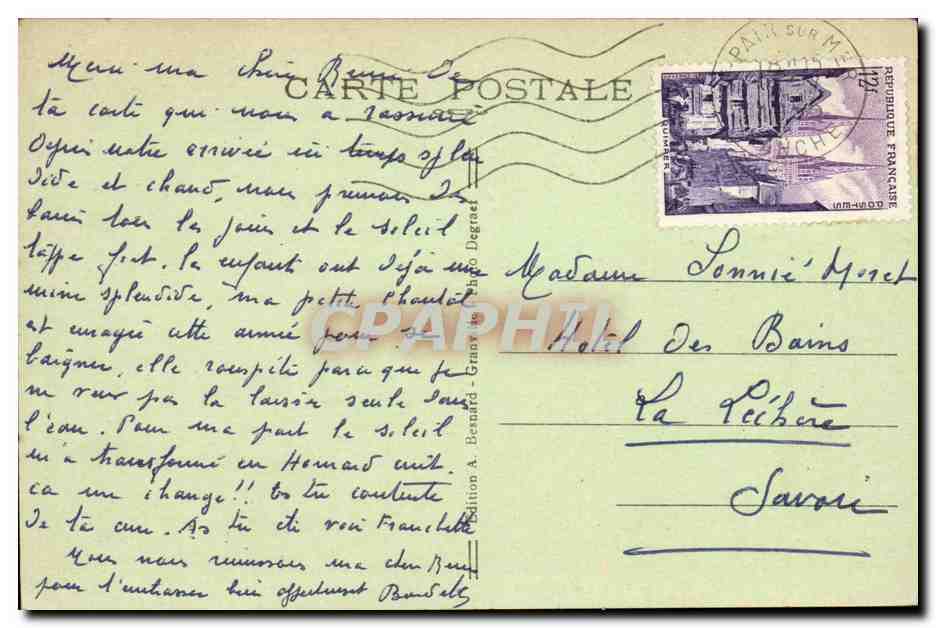 CARTE POSTALE
Merci ma chère de
ta carte qui nous a rassuré
Depuis notre arrivée ici temps splen
dide et chaud, nous prenons des
bains tous les jours et le soleil
tappe fort. Les enfants ont déjà une
mine splendide, ma petite Chantal
est enragée cette année pour se
baigner, elle rouspète parce que je
ne veux pas la laisser seule dans
l'eau. Pour ma part le soleil
m'a transformé en Homard cuit.
ca me change!! Es tu contente
de ta cure. As tu été voir Franchette
Nous nous réunissons ma chère
pour t'embrasser bien affectueusement
Edition A. Besnard - Granville Photo Degraef
RÉPUBLIQUE FRANÇAISE
POSTES
12f
QUIMPER
PAIR SUR MER
MANCHE
Madame Lonnié Moret
Hôtel des Bains
La Léchère
Savoie
CPAPHIL